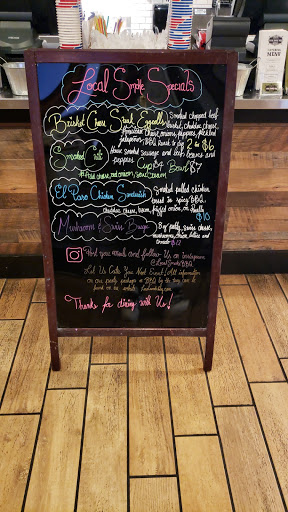 Local Smoke Specials
Brisket Cheese Steak Eggrolls
Smoked chopped beef
brisket, cheddar cheese,
American cheese, onions, peppers, pickled
jalapeños, BBQ Ranch to dip 2 for $6
Smoked Chili
House smoked sausage and beef, beans and
peppers. Cup $4 Bowl $7
*Add cheese, red onion, sour cream
El Paso Chicken Sandwich
Smoked pulled chicken
tossed in spicy BBQ,
cheddar cheese, bacon, pickled onion, on
$10
Mushroom & Swiss Burger
8oz patty, swiss cheese,
mushrooms, onion, lettuce and
tomato $12
Post your meals and follow us on instagram
@LocalSmokeBBQ
Let Us Cater Your Next Event! All information
on our party packages or BBQ by the tray can be
found on our website
Thanks for dining with Us!
CATERING
MENU